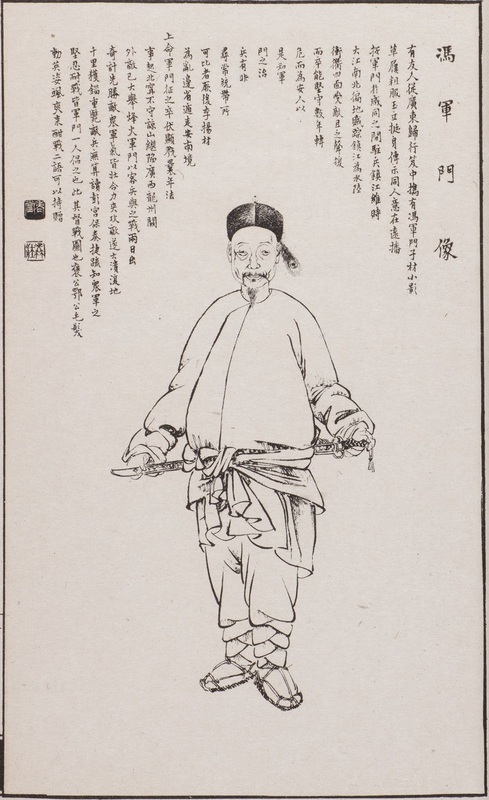 馮軍門像
有友人從廣東歸行笈中攜有馮軍門子材小影
草履裋服玉立挺身傳示同人意在遠播
按軍門於咸同之間駐兵鎮江維時
大江南北徧地賊踪鎮江為水陸
衝衢四面受敵且乏聲援
而卒能堅守數年轉
危而為安人以
是知軍
門之治
兵有非
尋常統帶所
可比者厥後李揚材
為亂邊省遁走安南境
上命軍門征之卒伏顯戮年法
事起北甯不守諒山繼陷廣西龍州關
外敵已大舉烽火軍門以客兵與之戰兩日出
奇計先勝敵眾軍氣皆壯合力夾攻敵遂大潰復地
千里獲錙重斃敵兵無算讀彭宮保奏捷疏知眾軍之
堅忍耐戰皆軍門一人倡之也此其督戰圖也褒公鄂公毛髮
動英姿颯爽來酣戰二語可以持贈